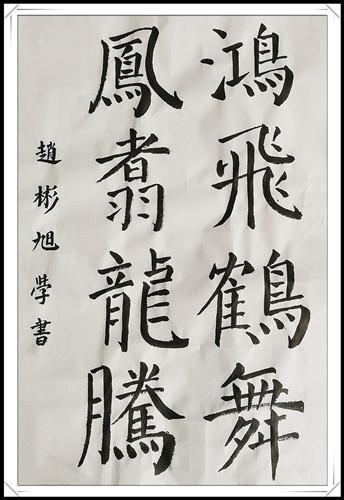 鴻飛鶴舞
鳳翥龍騰
趙彬旭學書